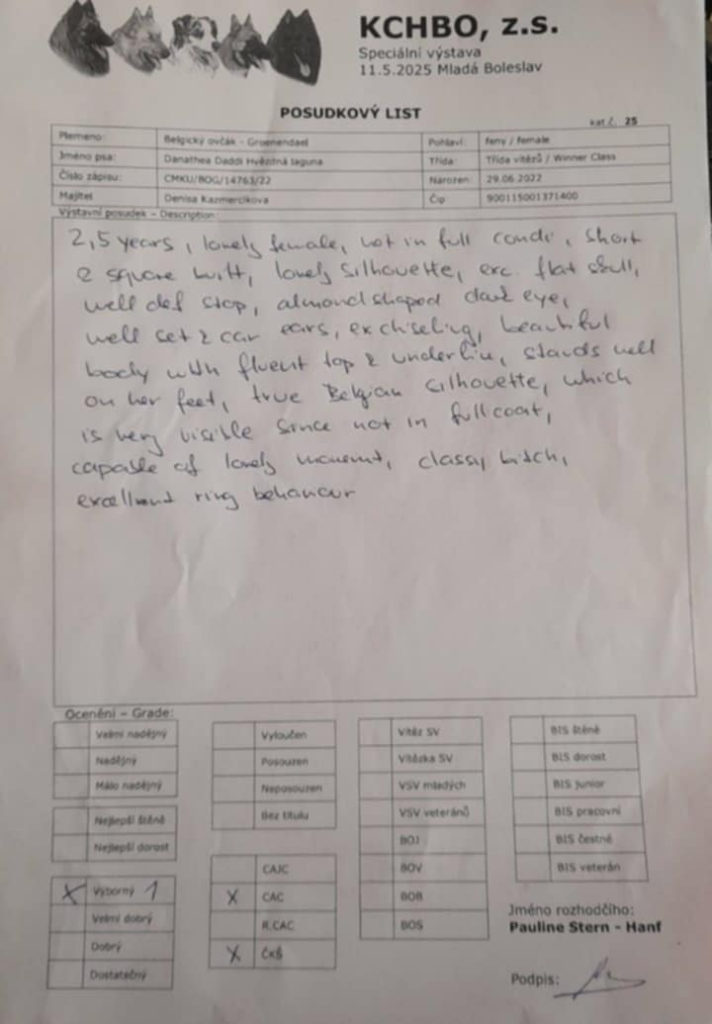 KCHBO, z.s.
Speciální výstava
11.5.2025 Mladá Boleslav
POSUDKOVÝ LIST
kat.č. 25
Plemeno: Belgický ovčák - Groenendael Pohlaví: feny / female
Jméno psa: Danathea Daddi Hvězdná laguna Třída: Třída vítězů / Winner Class
Číslo zápisu: CMKU/BOG/14763/22 Narozen: 29.06.2022
Majitel Denisa Kazmercikova Čip 900115001371400
Výstavní posudek – Description:
2,5 years, lovely female, not in full condi, short
& square built, lovely silhouette, exc. flat skull,
well def stop, almond shaped dark eye,
well set & car ears, exc chiseling, beautiful
body with fluent top & underline, stands well
on her feet, true Belgian silhouette, which
is very visible since not in full coat,
capable of lovely movemt, classy bitch,
excellent ring behaviour
Ocenění – Grade:
Velmi nadějný
Nadějný
Málo nadějný
Nejlepší štěně
Nejlepší dorost
X Výborný 1
Velmi dobrý
Dobrý
Dostatečný
Vyloučen
Posouzen
Neposouzen
Bez titulu
CAJC
X CAC
R.CAC
X ČKŠ
Vítěz SV
Vítězka SV
VSV mladých
VSV veteránů
BOJ
BOV
BOB
BOS
BIS štěně
BIS dorost
BIS junior
BIS pracovní
BIS čestné
BIS veterán
Jméno rozhodčího:
Pauline Stern - Hanf
Podpis: